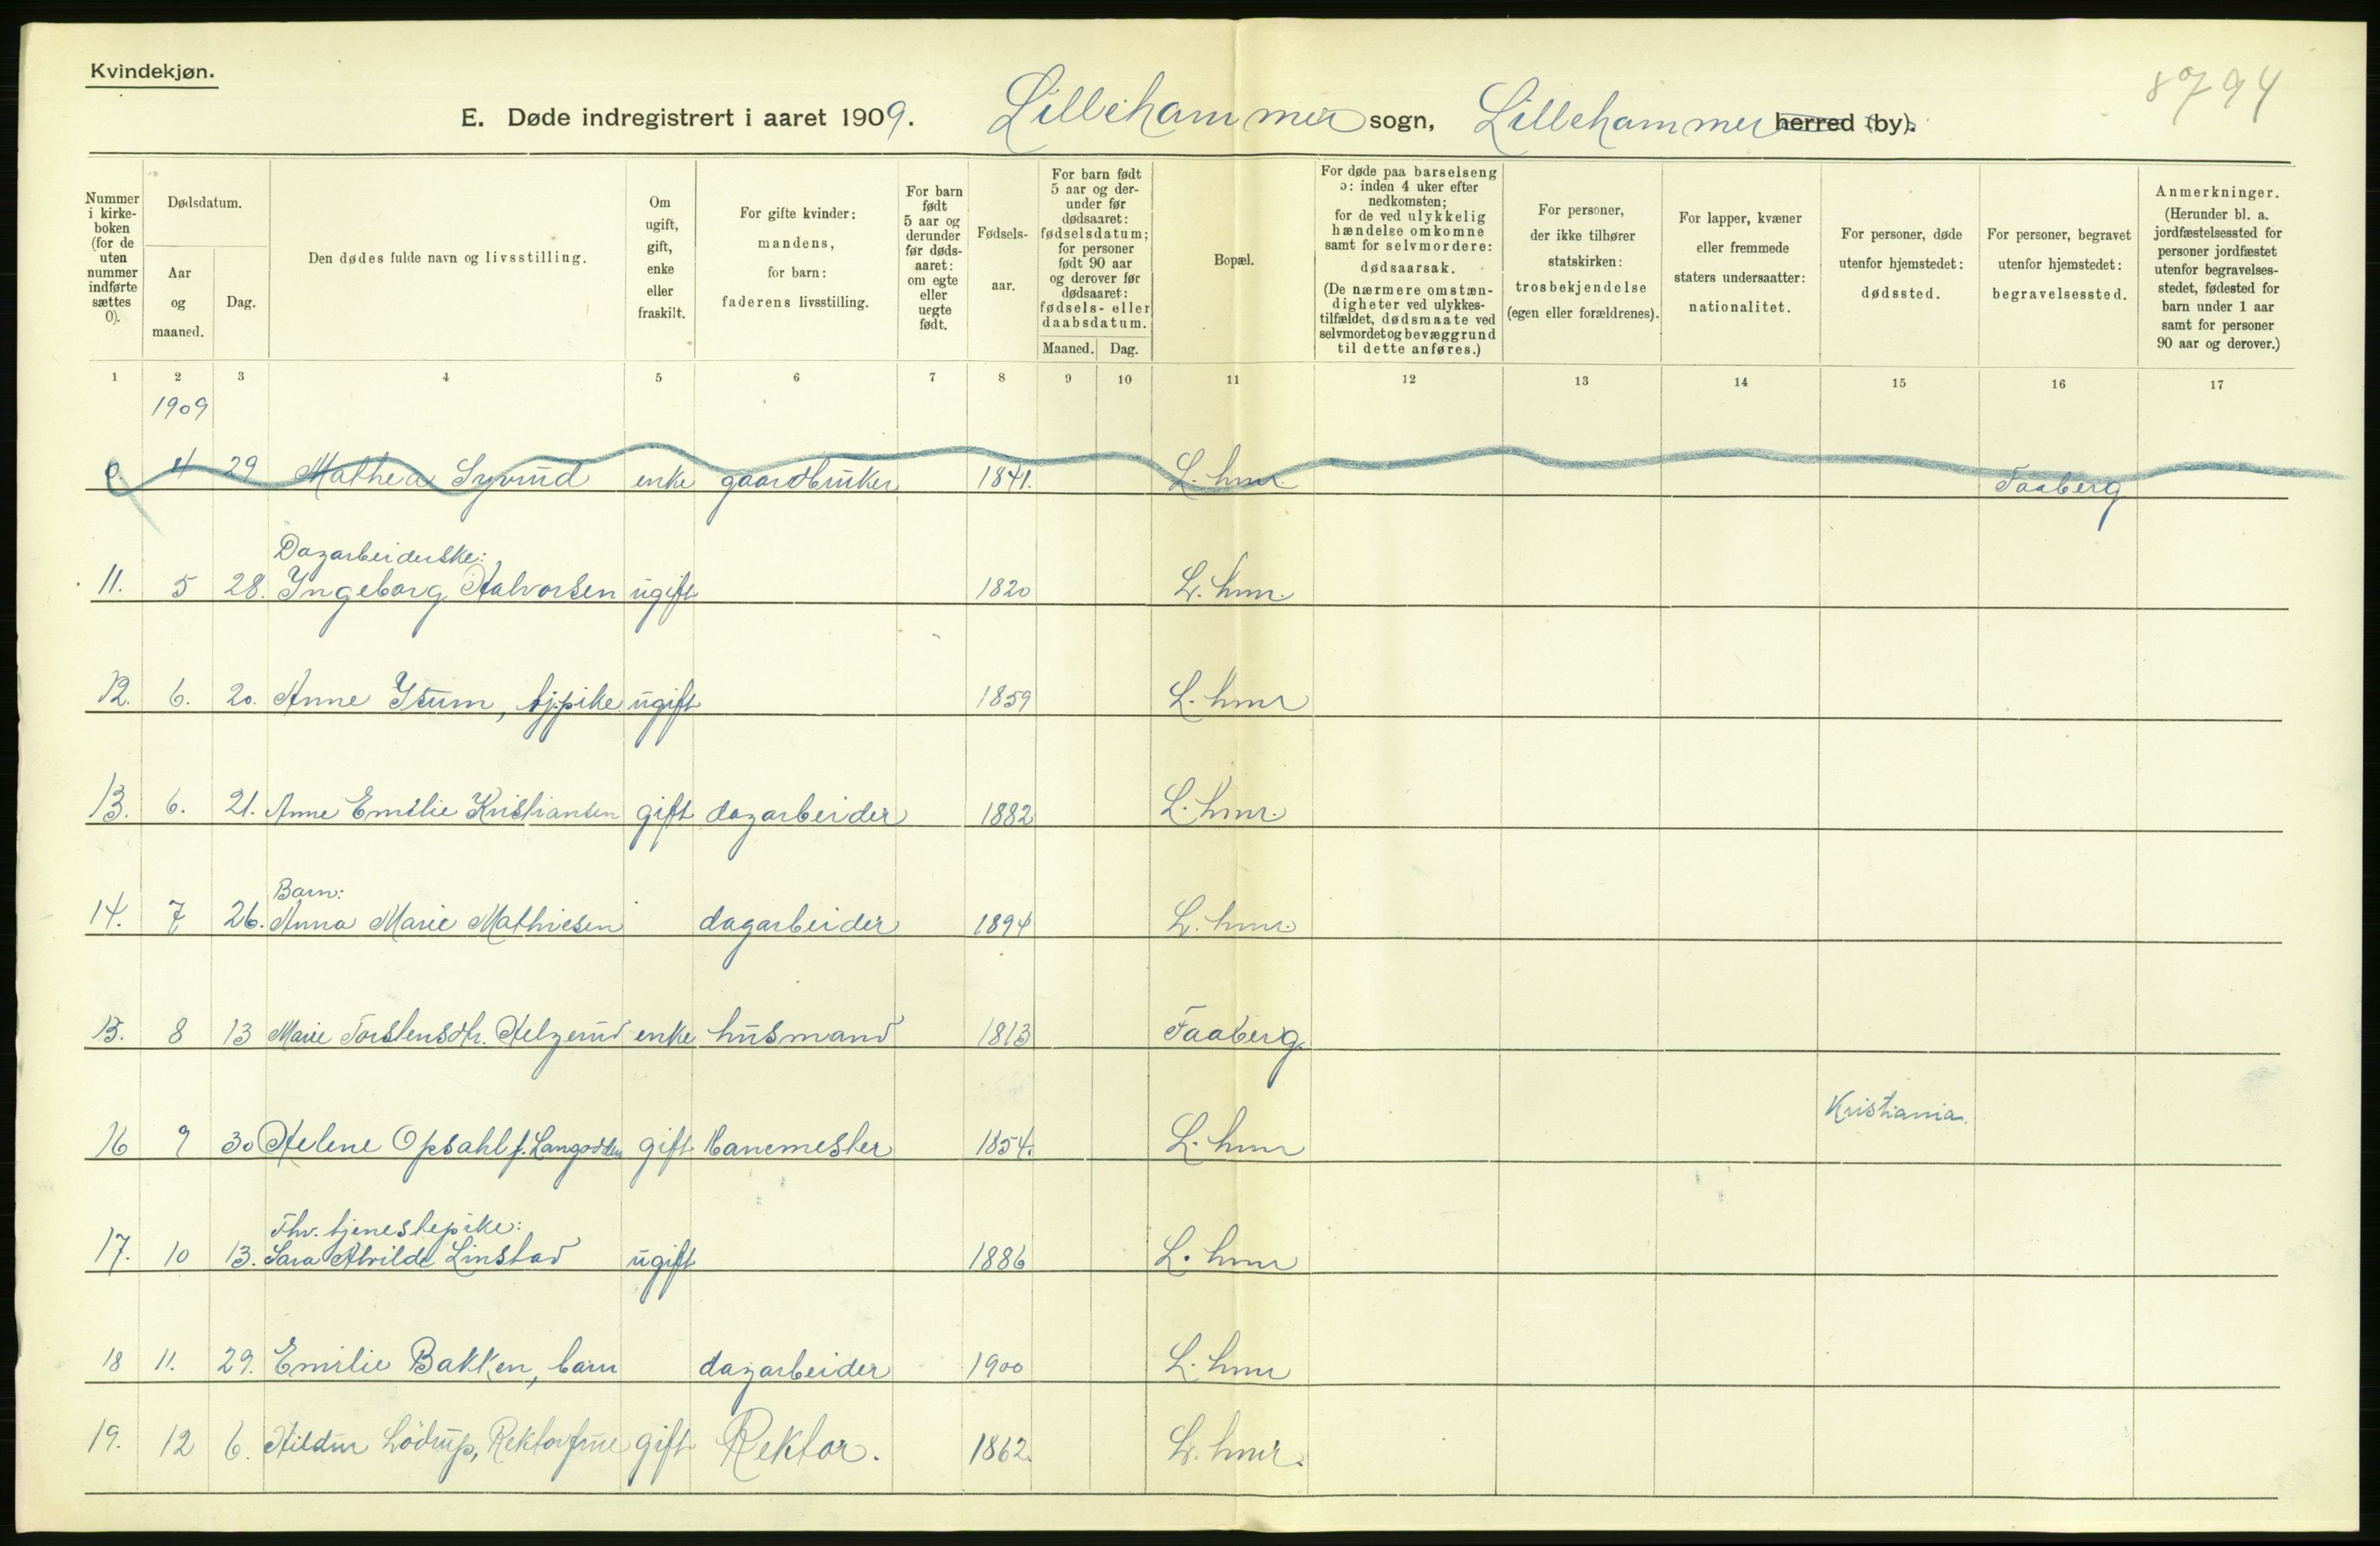 Kvindekjøn.
8794
E. Døde indregistrert i aaret 1909. Lillehammer sogn, Lillehammer herred (by).
Nummer i kirke-boken (for de uten nummer indførte sættes 0).
Dødsdatum.
Aar og maaned.
Dag.
Den dødes fulde navn og livsstilling.
Om ugift, gift, enke eller fraskilt.
For gifte kvinder: mandens, for barn: faderens livsstilling.
For barn født 5 aar og derunder før døds-aaret: om egte eller uegte født.
Fødsels-aar.
For barn født 5 aar og der-under før dødsaaret: fødselsdatum; for personer født 90 aar og derover før dødsaaret: fødsels- eller daabsdatum.
Maaned. Dag.
Bopæl.
For døde paa barselseng ɔ: inden 4 uker efter nedkomsten; for de ved ulykkelig hændelse omkomne samt for selvmordere: dødsaarsak. (De nærmere omstæn-digheter ved ulykkes-tilfældet, dødsmaate ved selvmordet og bevæggrund til dette anføres.)
For personer, der ikke tilhører statskirken: trosbekjendelse (egen eller forældrenes).
For lapper, kvæner eller fremmede staters undersaatter: nationalitet.
For personer, døde utenfor hjemstedet: dødssted.
For personer, begravet utenfor hjemstedet: begravelsessted.
Anmerkninger. (Herunder bl. a. jordfæstelsessted for personer jordfæstet utenfor begravelses-stedet, fødested for barn under 1 aar samt for personer 90 aar og derover.)
1 2 3 4 5 6 7 8 9 10 11 12 13 14 15 16 17
1909
0 4 29 Mathea Syvrud enke gaardbruker 1841. L. hmr. Faaberg
Dagarbeiderske:
11. 5 28. Ingeborg Halvorsen ugift 1820 L. hmr.
12. 6. 20. Anne Isum, tj.pike ugift 1859 L. hmr
13. 6. 21. Anne Emilie Kristiansen gift dagarbeider 1882 L. hmr.
Barn:
14. 7 26. Anna Marie Mathiesen dagarbeider 1894 L. hmr.
15. 8 13 Marie Torstensdtr. Helgerud enke husmand 1813 Faaberg.
Kristiania.
16 9 30 Helene Opsahl f. Langodden gift banemester 1854. L. hmr
Fhv. tjenestepike:
17. 10 13. Sara Alvilde Linstad ugift 1886 L. hmr
18 11. 29. Emilie Bakken, barn dagarbeider 1900 L. hmr
19. 12 6. Hildur Lödrup, Rektorfrue gift Rektor. 1862. L. hmr.